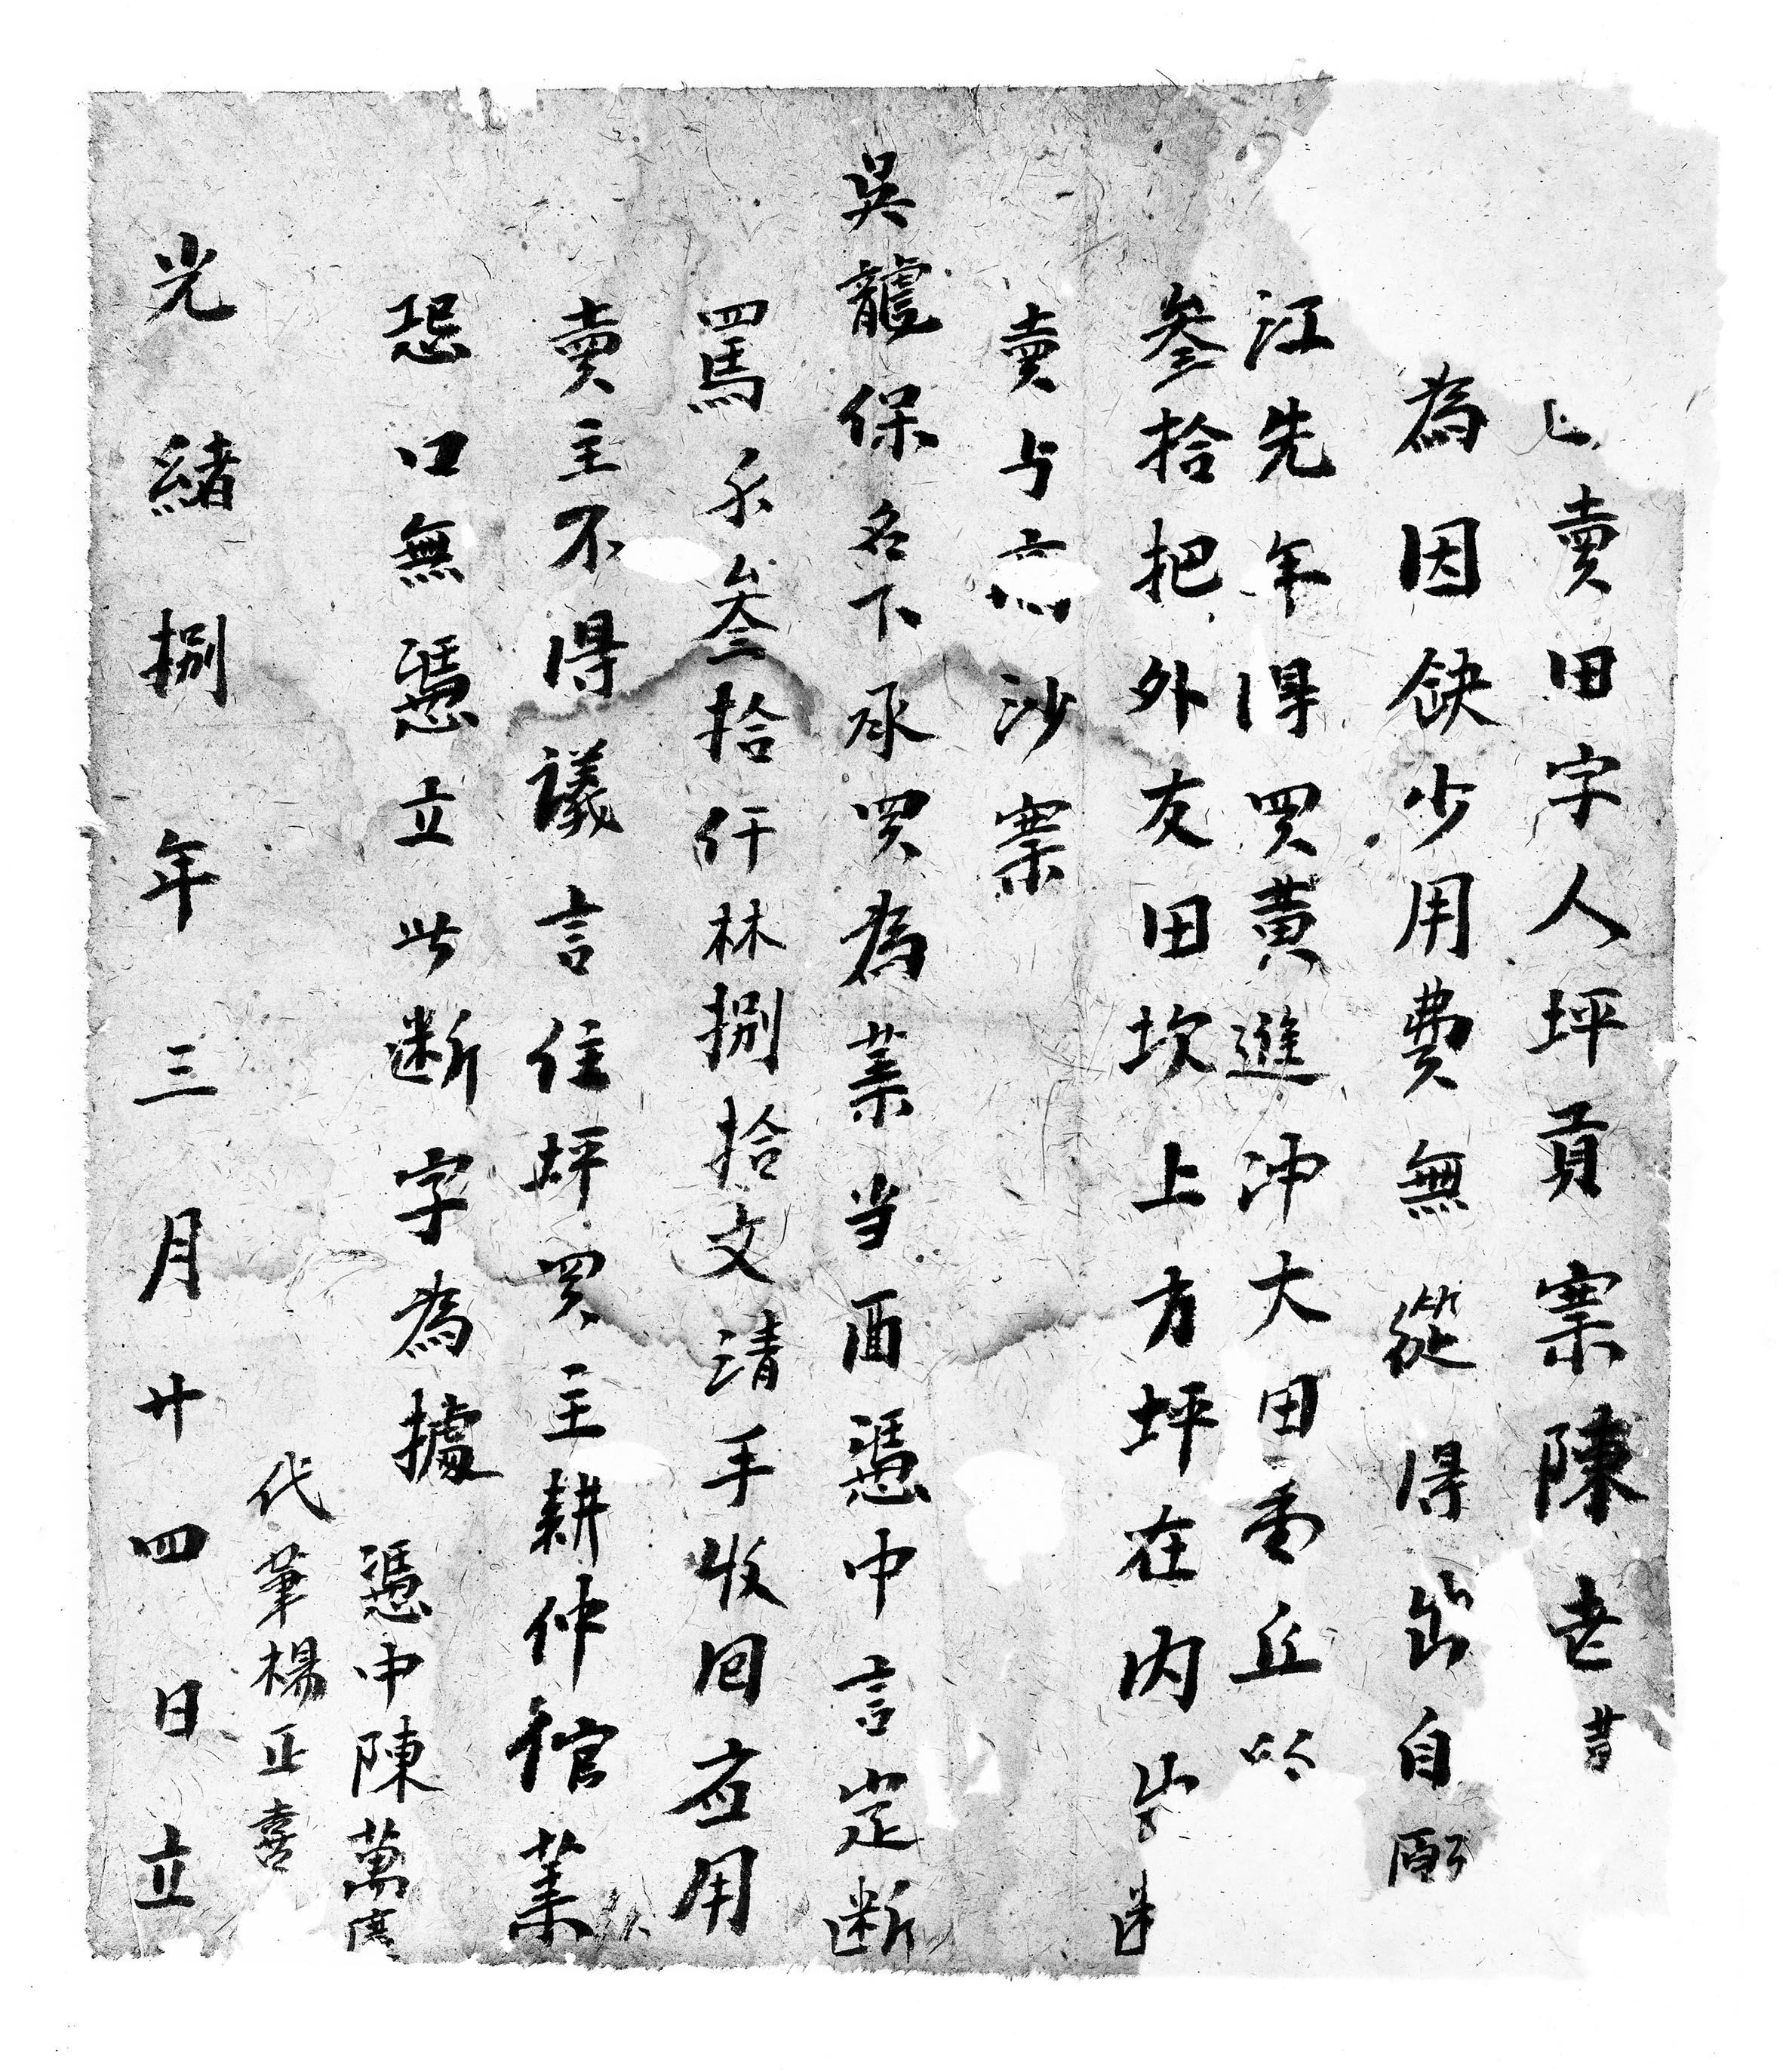 賣田字人坪貢寨陳老昔
為因缺少用費無從得出自願
江先年得買黃進冲大田壹丘以
叁拾把外友田坎上方坪在内出断
賣与 沙寨
吳龍保名下承買為業当面憑中言定断
罵禾叁拾仟林捌拾文清手收回应用
賣主不得議言住坪買主耕仲管業
恐口無憑立此断字為據
憑中陳萬
代筆楊正喜
光緒捌年三月廿四日立